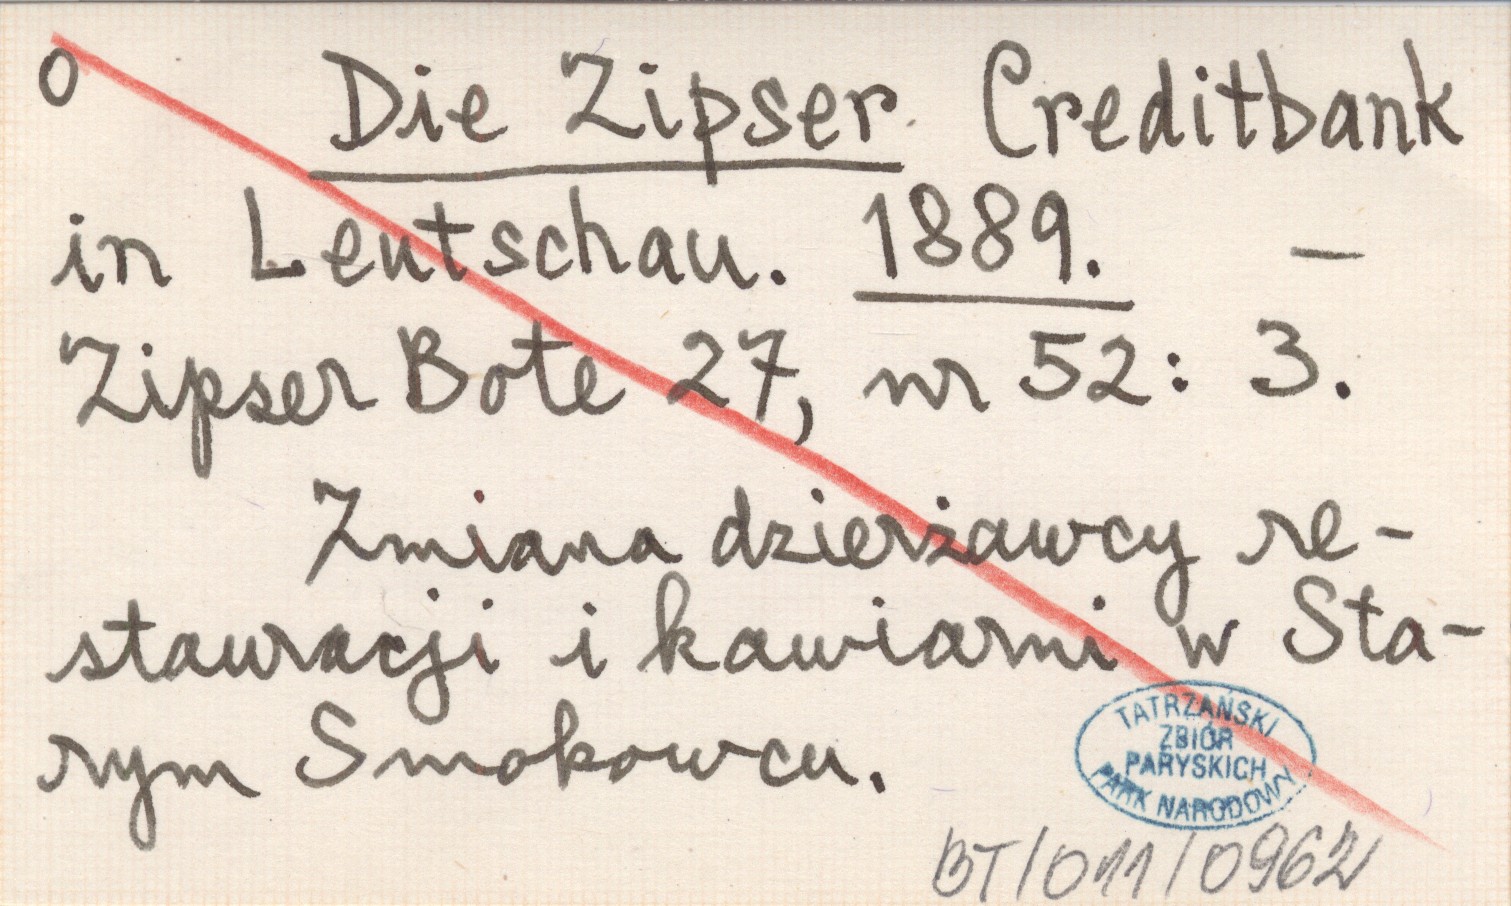 O Die Zipser Creditbank
in Leutschau. 1889. —
Zipser Bote 27, nr 52: 3.
Zmiana dzierżawcy re-
stauracji i kawiarni w Sta-
rym Smokowcu.
TATRZAŃSKI
ZBIÓR
PARYSKICH
PARK NARODOWY
BT/011/0962